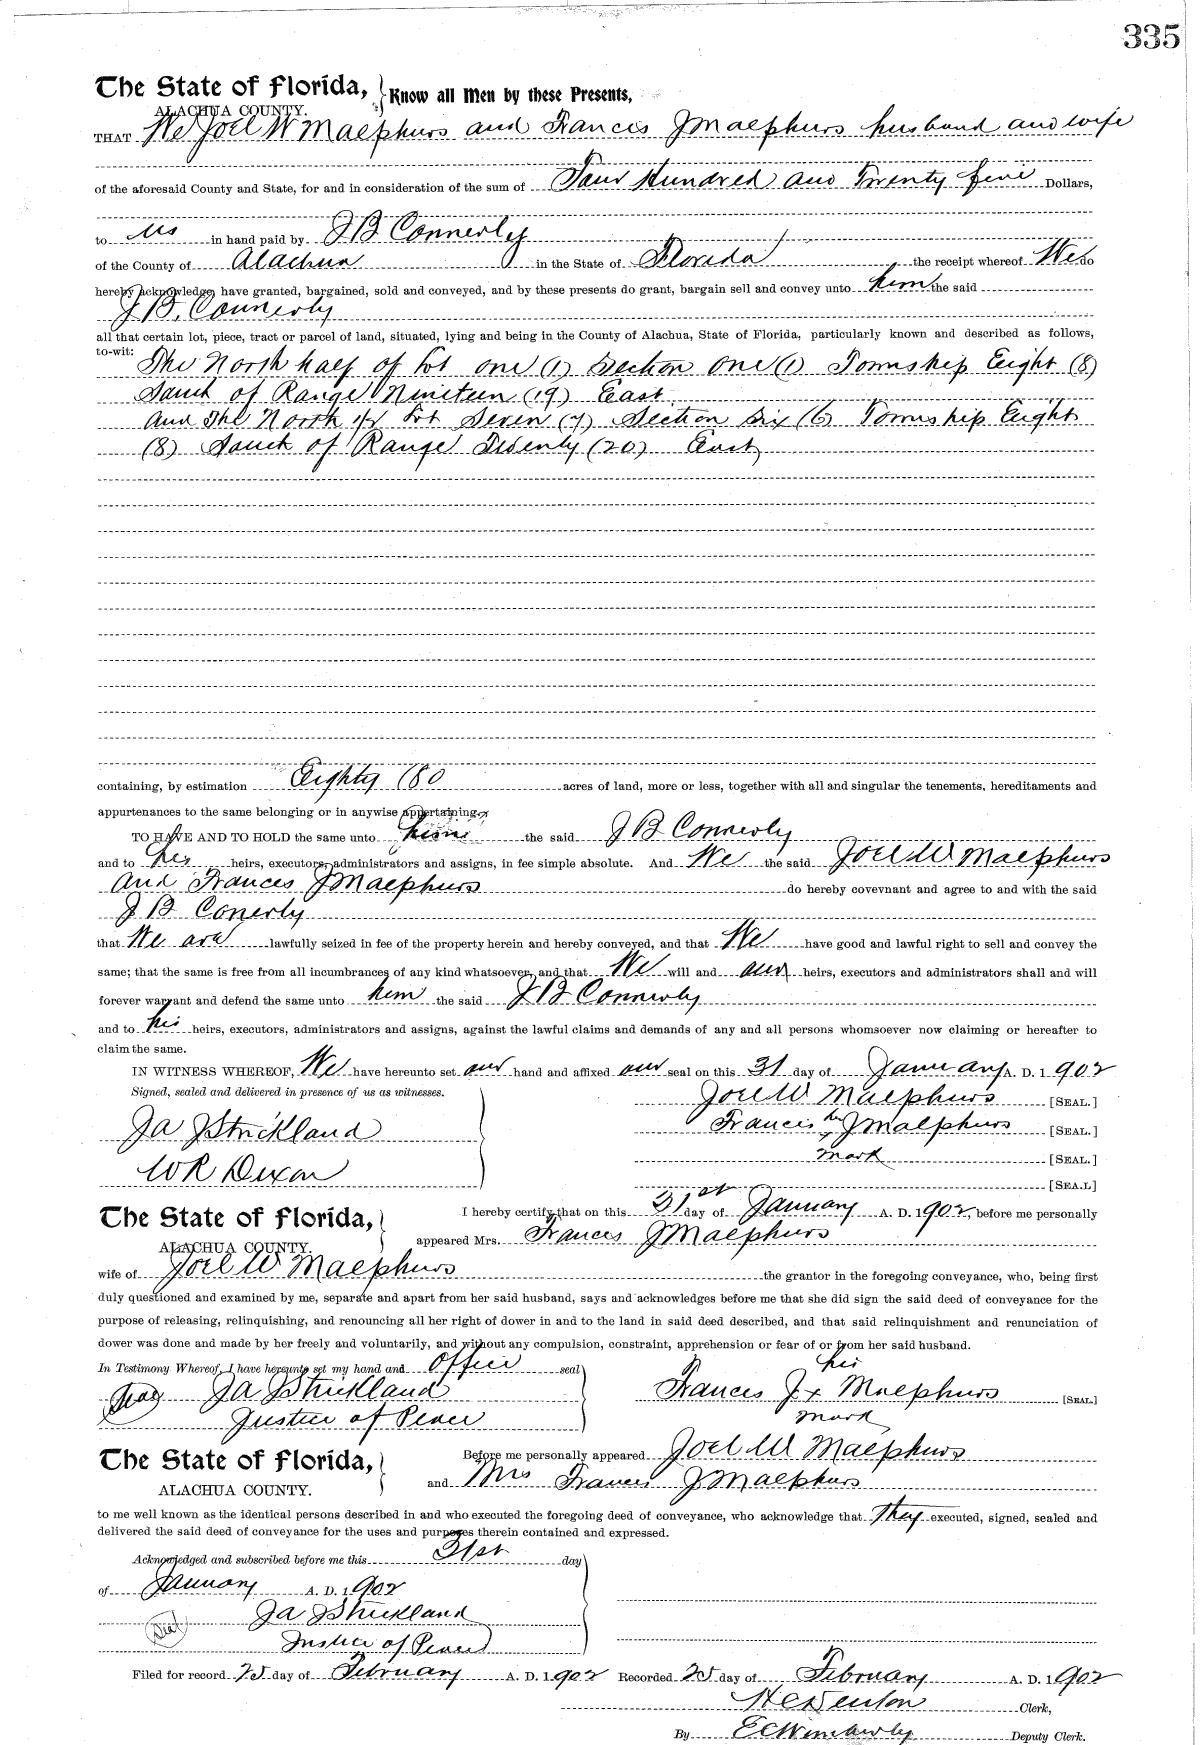 335
The State of Florida, Know all Men by these Presents,
ALACHUA COUNTY.
THAT We Joel W Maephurs and Francis J Maephurs husband and wife
of the aforesaid County and State, for and in consideration of the sum of Four Hundred and Twenty five Dollars,
to us in hand paid by J B Connerly
of the County of Alachua in the State of Florida the receipt whereof We do
hereby acknowledge, have granted, bargained, sold and conveyed, and by these presents do grant, bargain sell and convey unto him the said
J B. Connerly
all that certain lot, piece, tract or parcel of land, situated, lying and being in the County of Alachua, State of Florida, particularly known and described as follows,
to-wit: The North half of Lot one (1) Section One (1) Township Eight (8)
South of Range Nineteen (19) East.
And The North 1/2 Lot Seven (7) Section Six (6) Township Eight
(8) South of Range Twenty (20) East
containing, by estimation Eighty (80 acres of land, more or less, together with all and singular the tenements, hereditaments and
appurtenances to the same belonging or in anywise appertaining.
TO HAVE AND TO HOLD the same unto him the said J B Connerly
and to his heirs, executors, administrators and assigns, in fee simple absolute. And We the said Joel W Maephurs
and Frances J Maephurs do hereby covevnant and agree to and with the said
J B Conerly
that We are lawfully seized in fee of the property herein and hereby conveyed, and that We have good and lawful right to sell and convey the
same; that the same is free from all incumbrances of any kind whatsoever, and that We will and our heirs, executors and administrators shall and will
forever warrant and defend the same unto him the said J B Connerly
and to his heirs, executors, administrators and assigns, against the lawful claims and demands of any and all persons whomsoever now claiming or hereafter to
claim the same.
IN WITNESS WHEREOF, We have hereunto set our hand and affixed our seal on this 31 day of January A. D. 1902
Signed, sealed and delivered in presence of us as witnesses.
Joel W Maephurs [SEAL.]
Francis her J Maephurs [SEAL.]
Ja J Strickland
x mark [SEAL.]
W R Dixon
[SEA.L]
The State of Florida, I hereby certify that on this 31st day of January A. D. 1902, before me personally
ALACHUA COUNTY. appeared Mrs. Frances J Maephurs
wife of Joel W Maephurs the grantor in the foregoing conveyance, who, being first
duly questioned and examined by me, separate and apart from her said husband, says and acknowledges before me that she did sign the said deed of conveyance for the
purpose of releasing, relinquishing, and renouncing all her right of dower in and to the land in said deed described, and that said relinquishment and renunciation of
dower was done and made by her freely and voluntarily, and without any compulsion, constraint, apprehension or fear of or from her said husband.
In Testimony Whereof, I have hereunto set my hand and office seal
his
(Seal) Ja J Strickland Frances J x Maephurs [SEAL]
Justice of Peace mark
The State of Florida, Before me personally appeared Joel W Maephurs
ALACHUA COUNTY. and Mrs Frances J Maephurs
to me well known as the identical persons described in and who executed the foregoing deed of conveyance, who acknowledge that they executed, signed, sealed and
delivered the said deed of conveyance for the uses and purposes therein contained and expressed.
Acknowledged and subscribed before me this 31st day
of January A. D. 1902
Ja J Strickland
(Seal) Justice of Peace
Filed for record 25 day of February A. D. 1902 Recorded 25 day of February A. D. 1902
H C Denton Clerk,
By E C Wimberly Deputy Clerk.